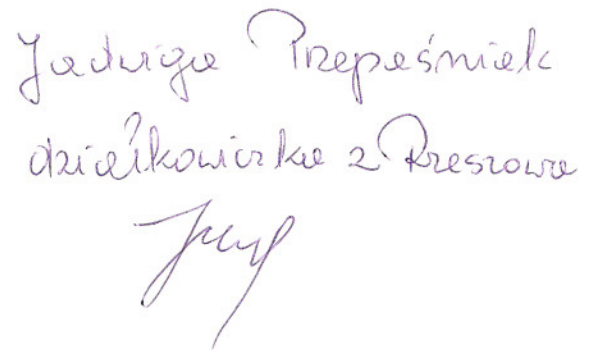 Jadwiga Przepaśniak
działkowiczka z Rzeszowa